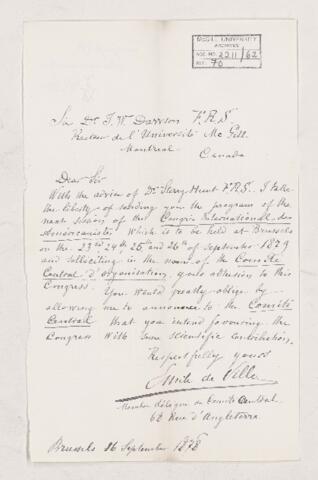 McGILL UNIVERSITY
ARCHIVES
ACC. NO. 2211/62
REF. 70
Dr. J. W. Dawson F.R.S.
Recteur de l'Université Mc Gill
Montreal
Canada
Dear Sir
With the advice of Dr. Sterry Hunt F.R.S. I take
the liberty of sending you the program of the
next session of the Congrès International des
Américanistes which is to be held at Brussels
on the 23rd 24th 25th and 26th of September 1879
and solliciting in the name of the Comité
Central d'organisation, your adhesion to this
Congress. You would greatly oblige by
allowing me to announce to the Comité
Central that you intend favouring the
Congress with some scientific contribution.
Respectfully yours
de Ville
Membre délégué du Comité Central
62 Rue d'Angleterre
Brussels 16 September 1878